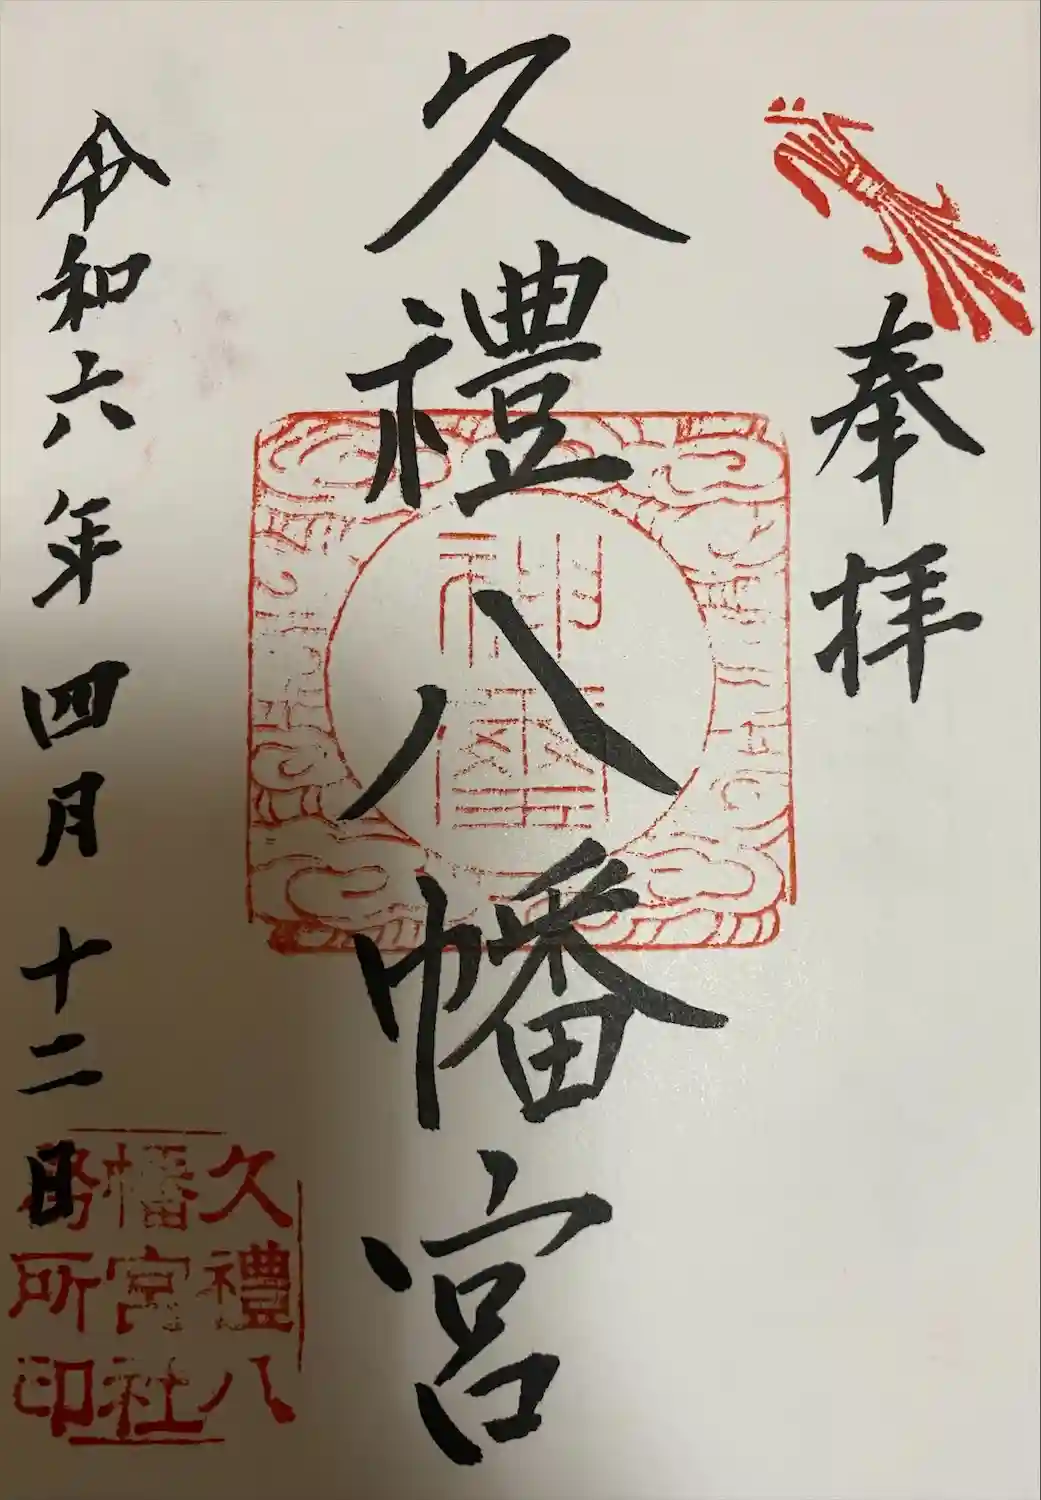 奉拝
久禮八幡宮
令和六年四月十二日
久禮八
幡宮社
務所印